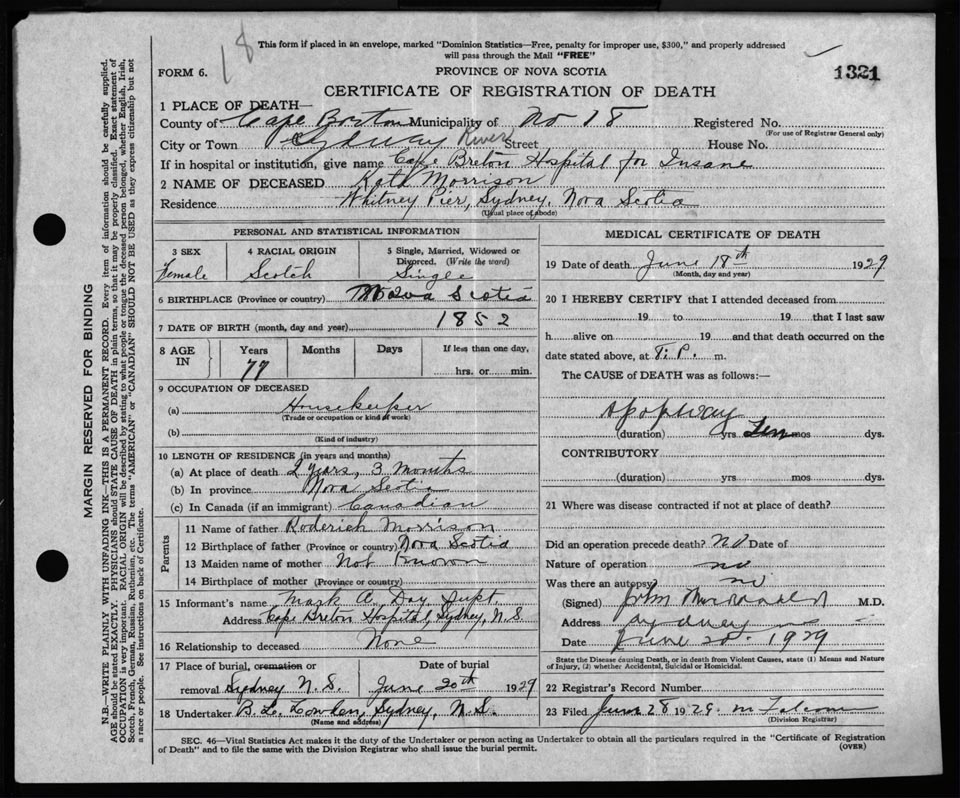 18
This form if placed in an envelope, marked "Dominion Statistics—Free, penalty for improper use, $300," and properly addressed
will pass through the Mail "FREE"
FORM 6.
PROVINCE OF NOVA SCOTIA
1321
CERTIFICATE OF REGISTRATION OF DEATH
1 PLACE OF DEATH—
County of Cape Breton Municipality of No 18 Registered No.
(For use of Registrar General only)
City or Town Sydney River Street House No.
If in hospital or institution, give name Cape Breton Hospital for Insane
2 NAME OF DECEASED Kate Morrison
Residence Whitney Pier, Sydney, Nova Scotia
(Usual place of abode)
PERSONAL AND STATISTICAL INFORMATION
3 SEX Female
4 RACIAL ORIGIN Scotch
5 Single, Married, Widowed or Divorced. (Write the word) Single
6 BIRTHPLACE (Province or country) Nova Scotia
7 DATE OF BIRTH (month, day and year) 1852
8 AGE IN Years 77 Months Days If less than one day, hrs. or min.
9 OCCUPATION OF DECEASED
(a) Housekeeper
(Trade or occupation or kind of work)
(b)
(Kind of industry)
10 LENGTH OF RESIDENCE (in years and months)
(a) At place of death 2 years, 3 months
(b) In province Nova Scotia
(c) In Canada (if an immigrant) Canadian
Parents
11 Name of father Roderich Morrison
12 Birthplace of father (Province or country) Nova Scotia
13 Maiden name of mother Not Known
14 Birthplace of mother (Province or country)
15 Informant's name Mark A. Day, Supt.
Address Cape Breton Hospital, Sydney, N.S.
16 Relationship to deceased None
17 Place of burial, cremation or removal Sydney N.S.
Date of burial June 20th 1929
18 Undertaker B. L. Sydney, N.S.
(Name and address)
MEDICAL CERTIFICATE OF DEATH
19 Date of death June 18th 1929
(Month, day and year)
20 I HEREBY CERTIFY that I attended deceased from
19 to 19 that I last saw
h alive on 19 and that death occurred on the
date stated above, at P. m.
The CAUSE of DEATH was as follows:—
(duration) yrs Ten mos dys.
CONTRIBUTORY
(duration) yrs mos dys.
21 Where was disease contracted if not at place of death?
Did an operation precede death? No Date of
Nature of operation no
Was there an autopsy no
(Signed) John M.D.
Address Sydney
Date June 20. 1929
State the Disease causing Death, or in death from Violent Causes, state (1) Means and Nature
of Injury, (2) whether Accidental, Suicidal or Homicidal.
22 Registrar's Record Number
23 Filed June 28 1929
(Division Registrar)
SEC. 46—Vital Statistics Act makes it the duty of the Undertaker or person acting as Undertaker to obtain all the particulars required in the "Certificate of Registration
of Death" and to file the same with the Division Registrar who shall issue the burial permit.
(OVER)
MARGIN RESERVED FOR BINDING
N.B.—WRITE PLAINLY WITH UNFADING INK—THIS IS A PERMANENT RECORD. Every item of information should be carefully supplied.
AGE should be stated EXACTLY. PHYSICIANS should STATE CAUSE OF DEATH in plain terms, so that it may be properly classified. Exact statement of
OCCUPATION is very important. RACIAL ORIGIN will be described by stating to what people or tongue the deceased person belonged, whether English, Irish,
Scotch, French, German, Russian, Ruthenian, etc. The terms "AMERICAN" or "CANADIAN" SHOULD NOT BE USED as they express citizenship but not
a race or people. See instructions on back of Certificate.